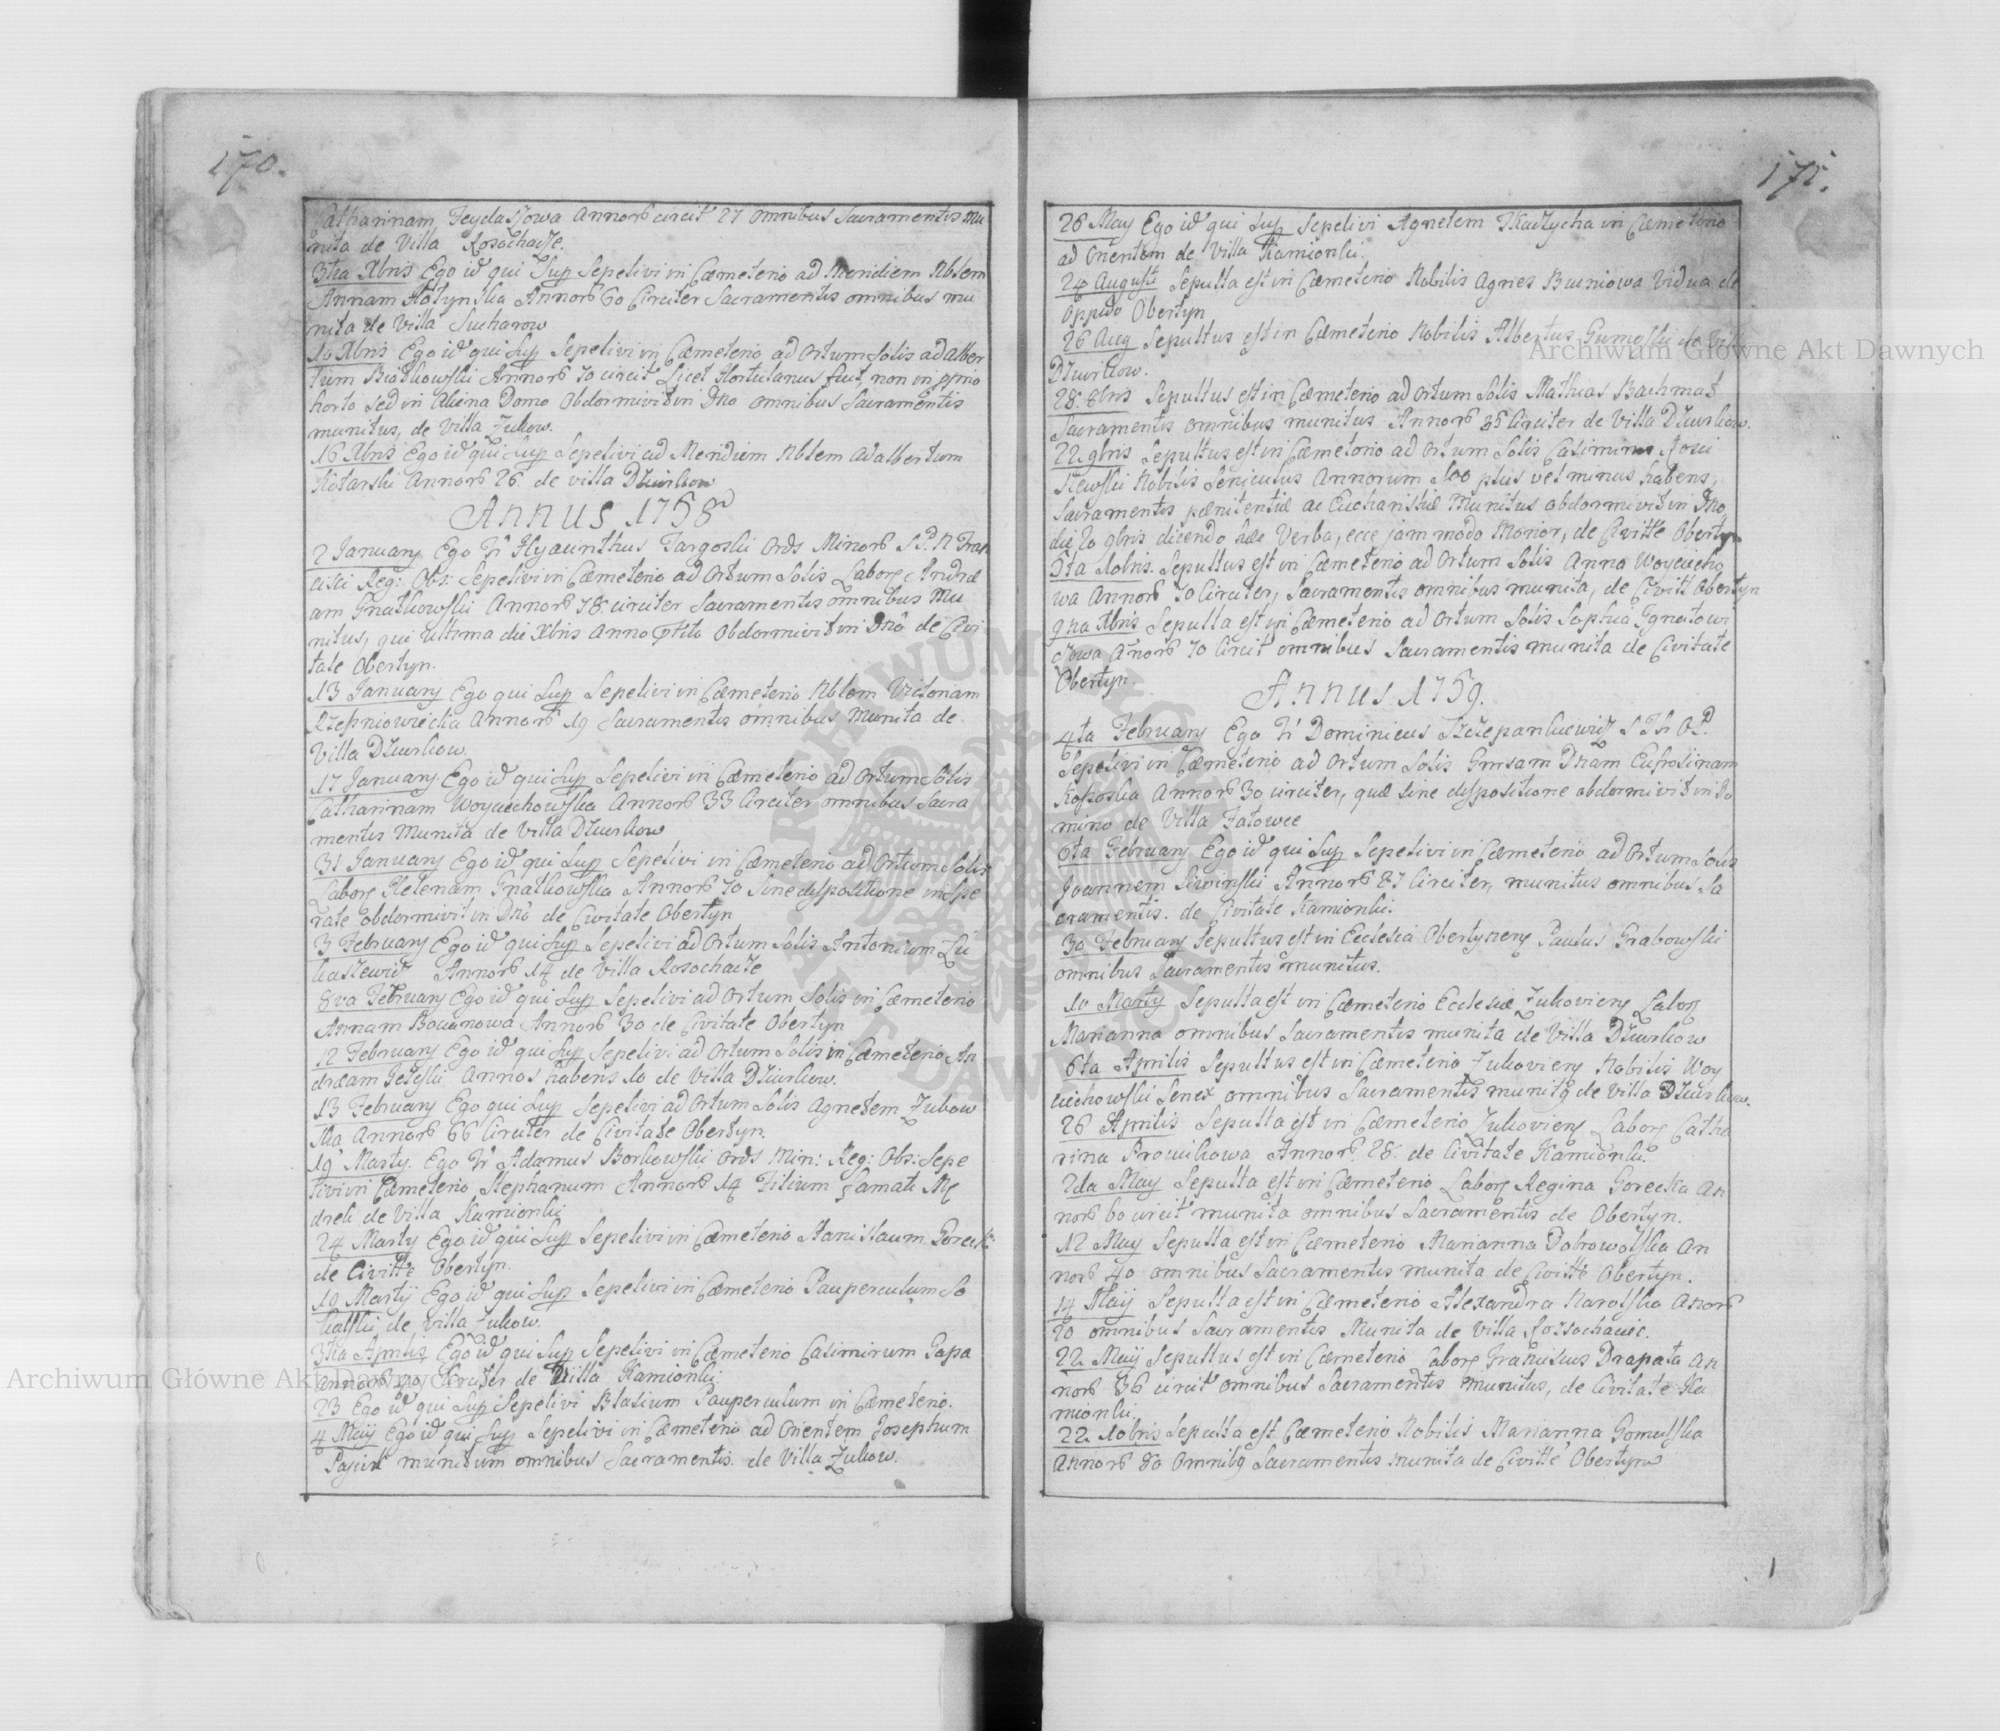 170.
Catharinam Feydasz̄owa Annorȝ circit 27 omnibus Sacramentis mu
nita de Villa Rosochacze.
3tia Xbris Ego id qui Sup Sepelivi in Cæmeterio ad Meridiem Nblem
Annam Hołynska Annorȝ 60 Circiter Sacramentis omnibus mu
nita de Villa Sucharow
10 Xbris Ego id qui Sup Sepelivi in Cæmeterio ad Ortum Solis adalber
tum Annorȝ 70 circit Licet Hortulanus fuit, non in pprio
horto sed in Aliena Domo Obdormivit in Dno omnibus Sacramentis
munitus, de Villa Zukow.
16 Xbris Ego id qui Sup Sepelivi ad Meridiem Nblem Adalbertum
Kotarski Annorȝ 26. de villa Dzurkow
Annus 1758
2 January Ego Fr Hyacinthus Targoski Ords Minorȝ S P. N Fran
cisci Reg: Obs: Sepelivi in Cæmeterio ad Ortum Solis Laborȝ Andræ
am Gnatkowski Annorȝ 78 circiter Sacramentis omnibus Mu
nitus, qui ultima die Xbris Anno Obdormivit in Dno de Civi
tate Obertyn.
13 January Ego qui Sup Sepelivi in Cæmeterio Nblem Victoriam
Rzepniowiecka Annorȝ 19 Sacramentis omnibus Munita de.
Villa Dzurkow.
17 January. Ego id qui Sup Sepelivi in Cæmeterio ad Ortum Solis
Catharinam Woyciechowska Annorȝ 33 Circiter omnibus Sacra
mentis Munita de Villa Dzurkow
31 January Ego id qui Sup Sepelivi in Cæmeterio ad Ortum Solis
Laborȝ Helenam Gnatkowska Annorȝ 70 Sine dispositione inspe
rate obdormivit in Dno de Civitate Obertyn
3 February Ego id qui Sup Sepelivi ad Ortum Solis Antonium Łu
kaszewicz Annorȝ 14 de Villa Rosochacze
8va February Ego id qui Sup Sepelivi ad Ortum Solis in Cæmeterio
Annam Annorȝ 30 de Civitate Obertyn
12 February Ego id qui Sup Sepelivi ad Ortum Solis in Cæmeterio An
dræam Jezeski Annos habens 10 de Villa Dzurkow.
13 February Ego qui Sup Sepelivi ad Ortum Solis Agnetem Zubow
ska Annorȝ 66 Circiter de Civitate Obertyn.
19 Marty. Ego Fr Adamus Borkowski Ords Min: Reg: Obs: Sepe
livi in Cæmeterio Stephanum Annorȝ 14 Filium Famati
de Villa Kamionki
24 Marty Ego id qui Sup Sepelivi in Cæmeterio Stanislaum Goreck
de Civitte Obertyn.
19 Martij Ego id qui Sup Sepelivi in Cæmeterio Pauperculum So
kalski de Villa Zukow.
3tia Aprilis, Ego id qui Sup Sepelivi in Cæmeterio Casimirum Gapa
Annorȝ 40 Circiter de Villa Kamionki
23 Ego id qui Sup Sepelivi Blasium Pauperculum in Cæmeterio.
4 Maij Ego id qui Sup Sepelivi in Cæmeterio ad Orientem Josephum
munitum omnibus Sacramentis. de Villa Zukow.
171.
26 May Ego id qui Sup Sepelivi Agnetem Tkaczycha in Cæmeterio
ad Orientem de Villa Kamionki.
24 Augusti Sepulta est in Cæmeterio Nobilis Agnes Burniowa Vidua de
Oppido Obertyn
26 Aug Sepultus est in Cæmeterio Nobilis Albertus Gumoski de Vill
Dzurkow.
28. 8bris Sepultus est in Cæmeterio ad Ortum Solis Mathias Bachmat
Sacramentis omnibus munitus Annorȝ 35 Circiter de Villa Dzurkow.
22. 9bris Sepultus est in Cæmeterio ad Ortum Solis Casimirus Rosci
szewski Nobilis Seniculus Annorum 100 plus vel minus habens,
Sacramentis pænitentiæ ac Eucharistiæ Munitus obdormivit in Dno,
die 20 9bris dicendo hæc Verba, ecce jam modo Morior, de Civitte Obertyn
5ta Xbris. Sepultus est in Cæmeterio ad Ortum Solis Anna Woyciecho
wa Annorȝ 70 Circiter, Sacramentis omnibus munita, de Civitt Obertyn
9na Xbris Sepulta est in Cæmeterio ad Ortum Solis Sophia Ignatowi
czowa Anorȝ 70 Circit omnibus Sacramentis munita de Civitate
Obertyn.
Annus 1759.
4ta February Ego Fr Dominicus Szczepankiewicz S Th OP.
Sepelivi in Cæmeterio ad Ortum Solis Gnrsam Dnam Eufrosinam
Koposka Annorȝ 30 circiter, quæ sine dispositione obdormivit in Do
mino de Villa Jatowce
6ta February Ego id qui Sup Sepelivi in Cæmeterio ad Ortum Solis
Joannem Siwinski Annorȝ 87 Circiter, munitus omnibus Sa
cramentis. de Civitate Kamionki.
30 February Sepultus est in Ecclesia Obertynery Paulus Grabowski
omnibus Sacramentis munitus.
10 Marty Sepulta est in Cæmeterio Ecclesiæ Zukoviery Laborȝ
Marianna omnibus Sacramentis munita de Villa Dzurkow
6ta Aprilis Sepultus est in Cæmeterio Zukoviery Nobilis Woy
ciechowski Senex omnibus Sacramentis munitȝ de Villa Dzurkow.
26 Aprilis Sepulta est in Cæmeterio Zukoviery Laborȝ Catha
rina Annorȝ 28. de Civitate Kamionki.
2da May Sepulta est in Cæmeterio Laborȝ Regina Gorecka An
norȝ 60 circit munita omnibus Sacramentis de Obertyn.
12 May Sepulta est in Cæmeterio Marianna Dobrowolska An
norȝ 40 omnibus Sacramentis munita de Civitte Obertyn.
14 Maij Sepulta est in Cæmeterio Alexandra Narolska Anorȝ
20 omnibus Sacramentis Munita de Villa Rossochacic.
22 Maij Sepultus est in Cæmeterio Laborȝ Franciscus Drapata An
norȝ 36 circit omnibus Sacramentis munitus, de Civitate Ka
mionki.
22 Xobris Sepulta est Cæmeterio Nobilis Marianna Gomulska
Annorȝ 80 omnibȝ Sacramentis munita de Civitte Obertyn
1
Archiwum Główne Akt Dawnych
Archiwum Główne Akt Dawnych
ARCHIWUM GŁÓWNE AKT DAWNYCH